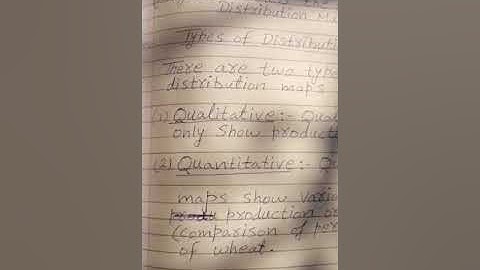 the
Distribution Ma
Types of Distributi
There are two type
distribution maps
(1) Qualitative:- Qua
only Show product
(2) Quantitative:- Qu
maps show vari
production or
(comparison of per
of wheat.